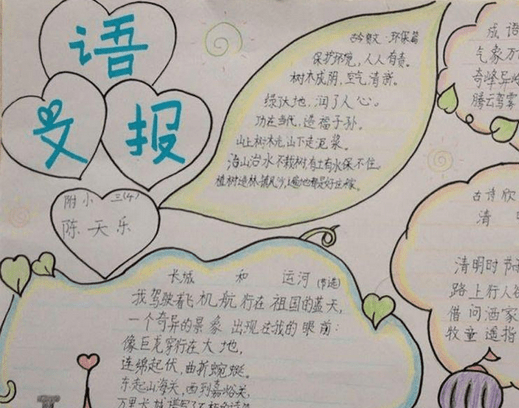 语
文
报
附小 三(4)
陈天乐
环保篇
保护环境，人人有责。
树木成阴，空气清新。
绿沃地，润了人心。
功在当代，造福子孙。
山上树木光，山下走泥浆。
海山治水不栽树，有土有水保不住。
长城 和 运河(节选)
我驾驶着飞机航行在祖国的蓝天，
一个奇异的景象出现在我的眼前：
像巨龙穿行在大地，
连绵起伏，曲折蜿蜒。
东起山海关，西到嘉峪关，
万里长城
成语
气象万
奇峰异
腾云驾雾
古诗欣
清
清明时节
路上行人
借问酒家
牧童遥指